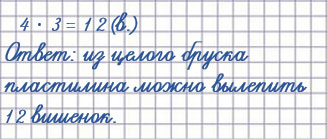 4 · 3 = 12 (в.)
Ответ: из целого бруска
пластилина можно вылепить
12 вишенок.